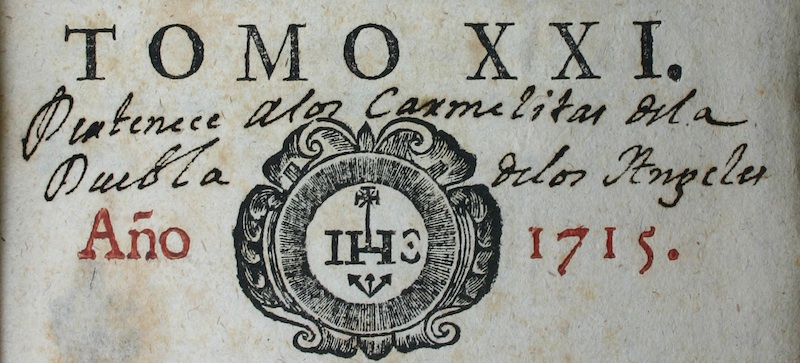 TOMO XXI.
Pertenece alos Carmelitas dela
Puebla delos Angeles
Año IHS 1715.